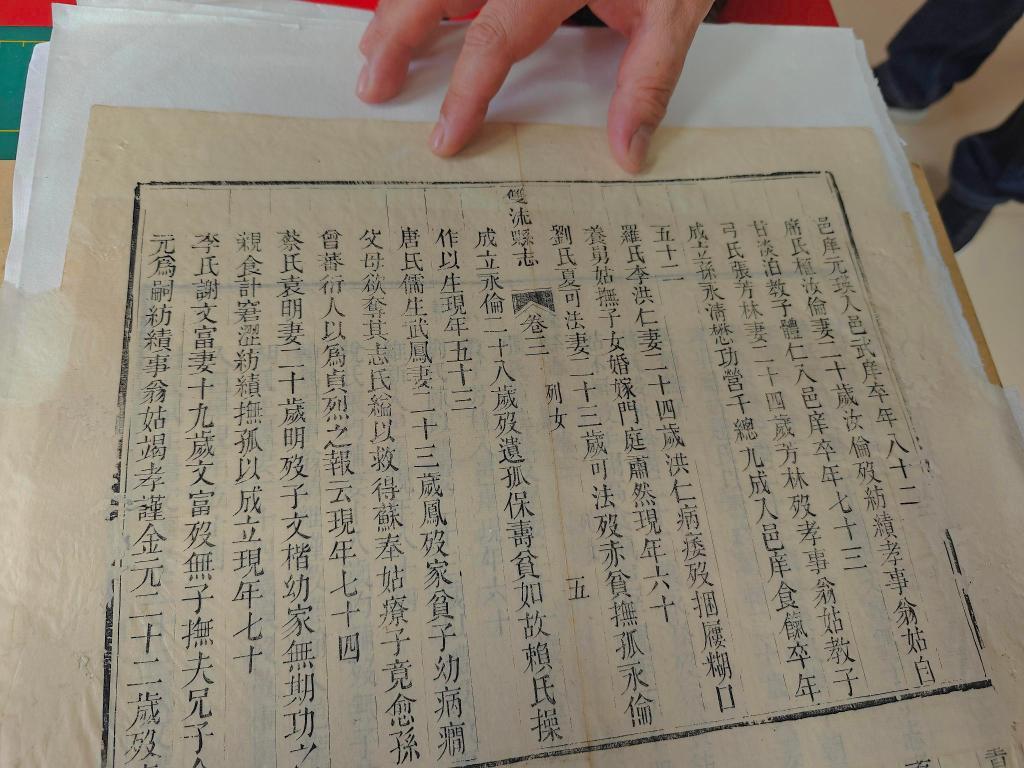 邑庠元瑛入邑武庠卒年八十二
席氏植汝倫妻二十歲汝倫歿紡績孝事翁姑自
甘淡泊教子體仁入邑庠卒年七十三
弓氏張芳林妻二十四歲芳林歿孝事翁姑教子
成立孫永清懋功營千總九成入邑庠食餼卒年
五十二
羅氏李洪仁妻二十四歲洪仁病痿歿捆屨糊口
養男姑撫子女婚嫁門庭肅然現年六十
劉氏夏可法妻二十三歲可法歿亦貧撫孤永倫
雙流縣志
卷三
列女
五
成立永倫二十八歲歿遺孤保壽貧如故賴氏操
作以生現年五十三
唐氏儒生武鳳妻二十三歲鳳歿家貧子幼病癇
父母欲奪其志氏縊以救得蘇奉姑療子竟愈孫
曾蕃衍人以為貞烈之報云現年七十四
蔡氏袁明妻二十歲明歿子文楷幼家無期功之
親食計窘澀紡績撫孤以成立現年七十
李氏謝文富妻十九歲文富歿無子撫夫兄子金
元為嗣紡績事翁姑竭孝謹金元二十二歲歿